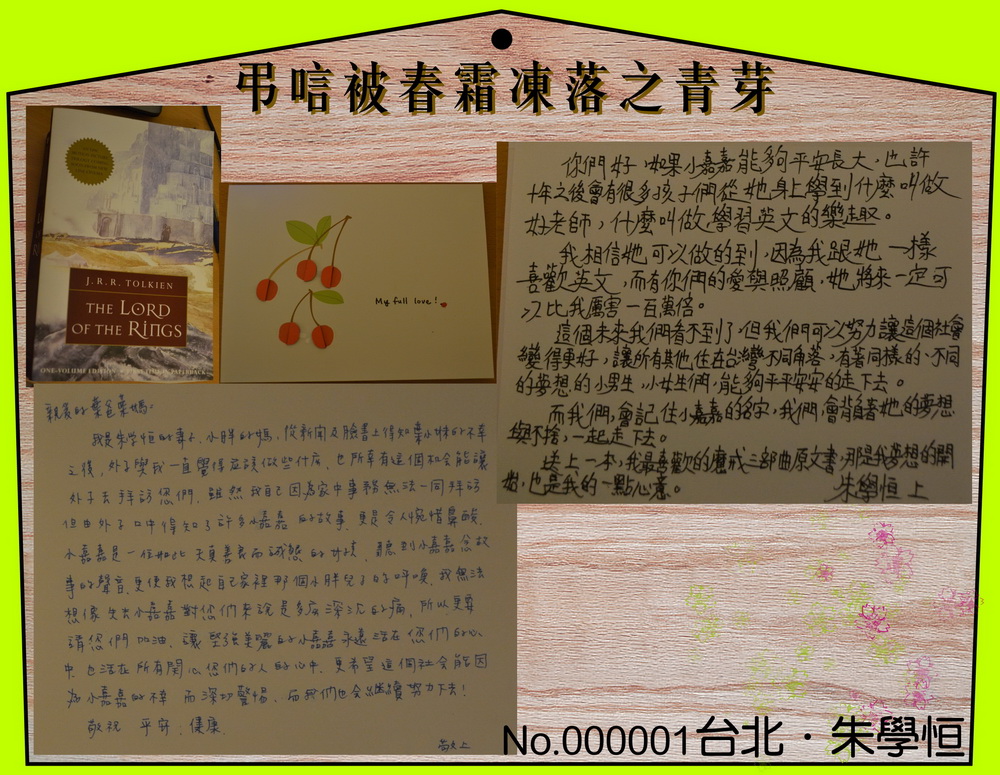 弔唁被春霜凍落之青芽
J.R.R. TOLKIEN
THE LORD
OF THE RINGS
ONE-VOLUME EDITION
My full love!
你們好,如果小嘉嘉能夠平安長大,也許
十年之後會有很多孩子們從她身上學到什麼叫做
好老師,什麼叫做學習英文的樂趣。
我相信她可以做的到,因為我跟她一樣
喜歡英文,而有你們的愛與照顧,她將來一定可
以比我厲害一百萬倍。
這個未來我們看不到了,但我們可以努力讓這個社會
變得更好,讓所有其他住在台灣不同角落,有著同樣的、不同
的夢想的小男生,小女生們,能夠平平安安的走下去。
而我們,會記住小嘉嘉的名字,我們會背著她的夢想
與不捨,一起走下去。
送上一本,我最喜歡的魔戒三部曲原文書,那是我夢想的開
始,也是我的一點心意。
朱學恒 上
親愛的葉爸葉媽:
我是朱學恒的妻子、小胖的媽,從新聞及臉書上得知葉小妹的不幸
之後,外子與我一直覺得應該做些什麼,也所幸有這個機會能讓
外子去拜訪您們,雖然我自己因為家中事務無法一同拜訪
但由外子口中得知了許多小嘉嘉的故事,更是令人惋惜鼻酸,
小嘉嘉是一位如此天真善良而誠懇的小孩,聽到小嘉嘉念故
事的聲音,更使我想起自己家裡那個小胖兒子的呼喚,我無法
想像失去小嘉嘉對您們來說是多麼深沉的痛,所以更要
請您們加油,讓堅強美麗的小嘉嘉永遠活在您們的心
中,也活在所有關心您們的人的心中,更希望這個社會能因
為小嘉嘉的不幸而深切警惕,而我們也會繼續努力下去!
敬祝 平安、健康
No.000001台北・朱學恒